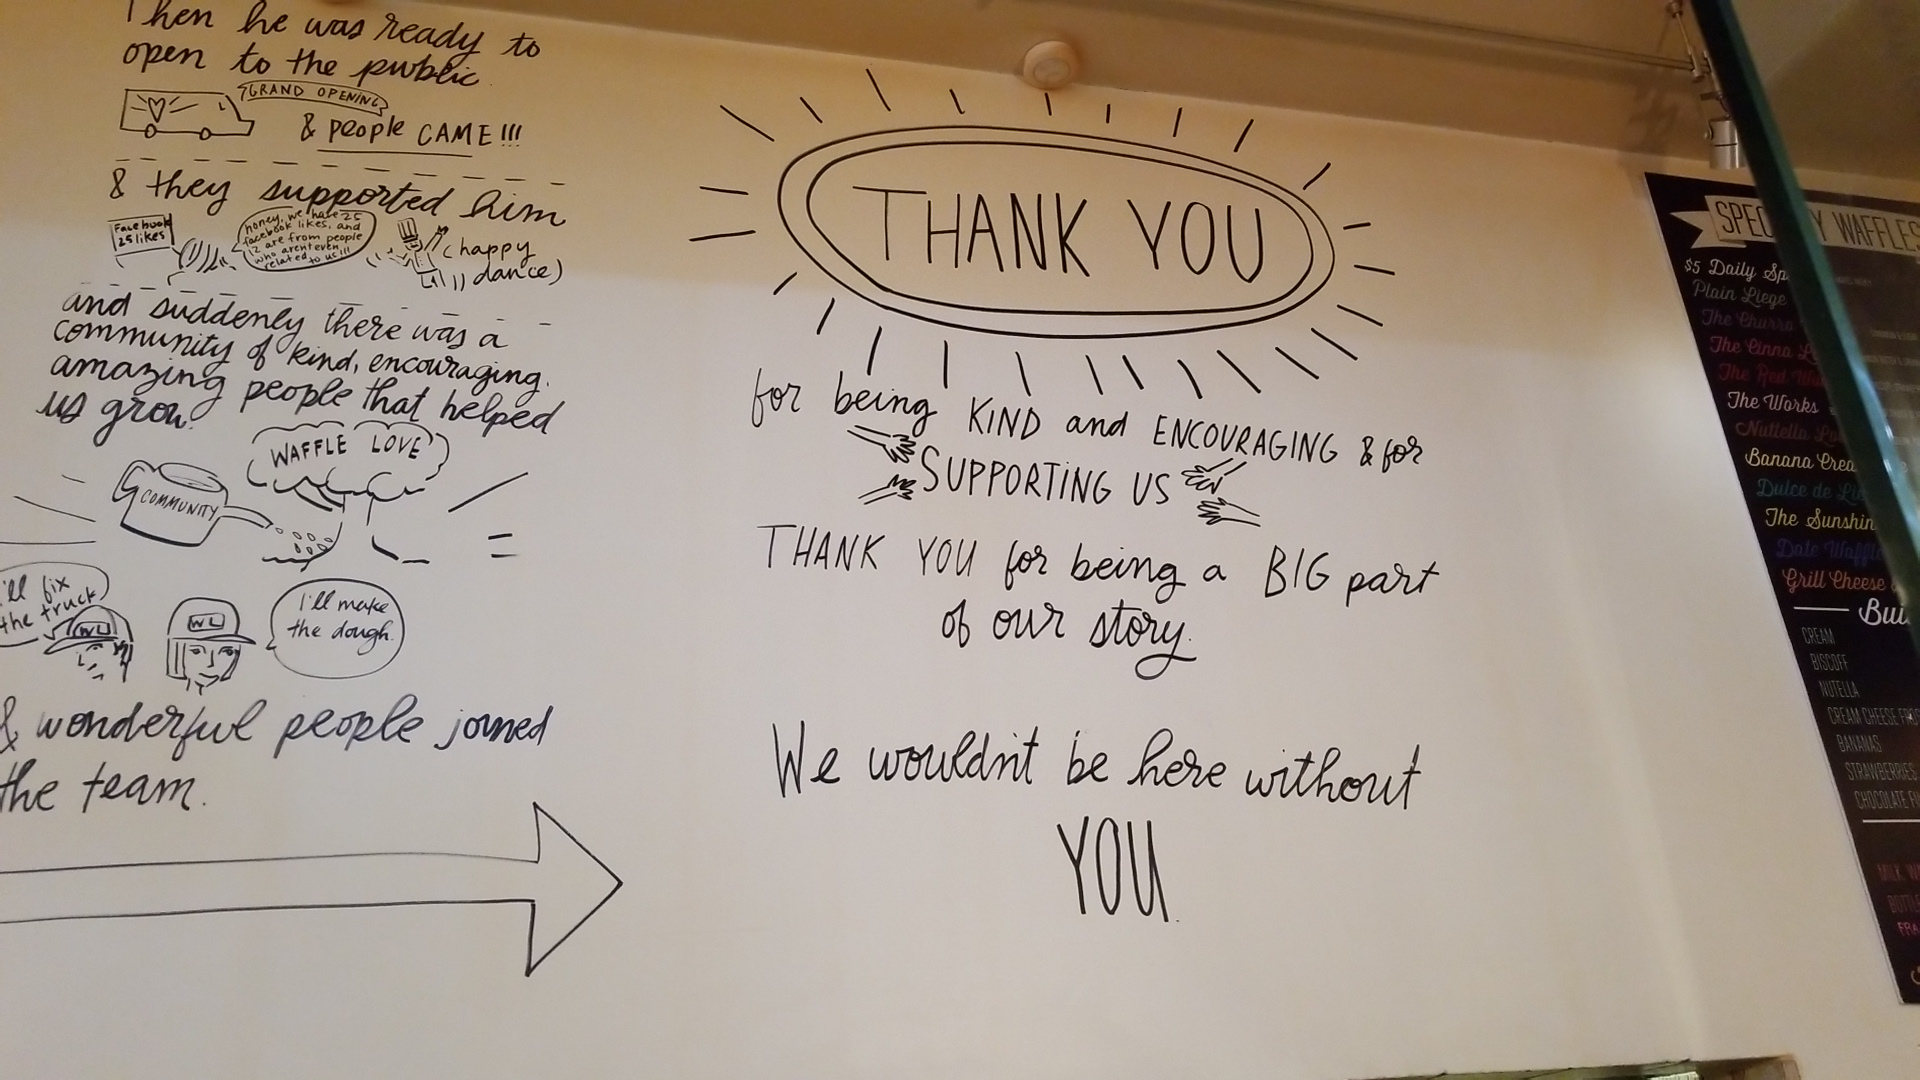 Then he was ready to
open to the public.
GRAND OPENING
& people CAME!!!
& they supported him
Facebook
25 likes
honey, we have 25
facebook likes, and
12 are from people
who aren't even
related to us!!!
(happy
dance)
and suddenly there was a
community of kind, encouraging,
amazing people that helped
us grow.
WAFFLE LOVE
COMMUNITY
I'll fix
the truck
WL
WL
I'll make
the dough.
& wonderful people joined
the team.
THANK YOU
for being KIND and ENCOURAGING & for
SUPPORTING US
THANK YOU for being a BIG part
of our story.
We wouldn't be here without
YOU.
WAFFLES
$5 Daily
Plain Liege
The Churro
The Cinna
The Red
The Works
Nutella
Banana
Dulce de
The
Date
Grill Cheese
CREAM
BISCOFF
NUTELLA
CREAM CHEESE
BANANAS
STRAWBERRIES
CHOCOLATE
MILK